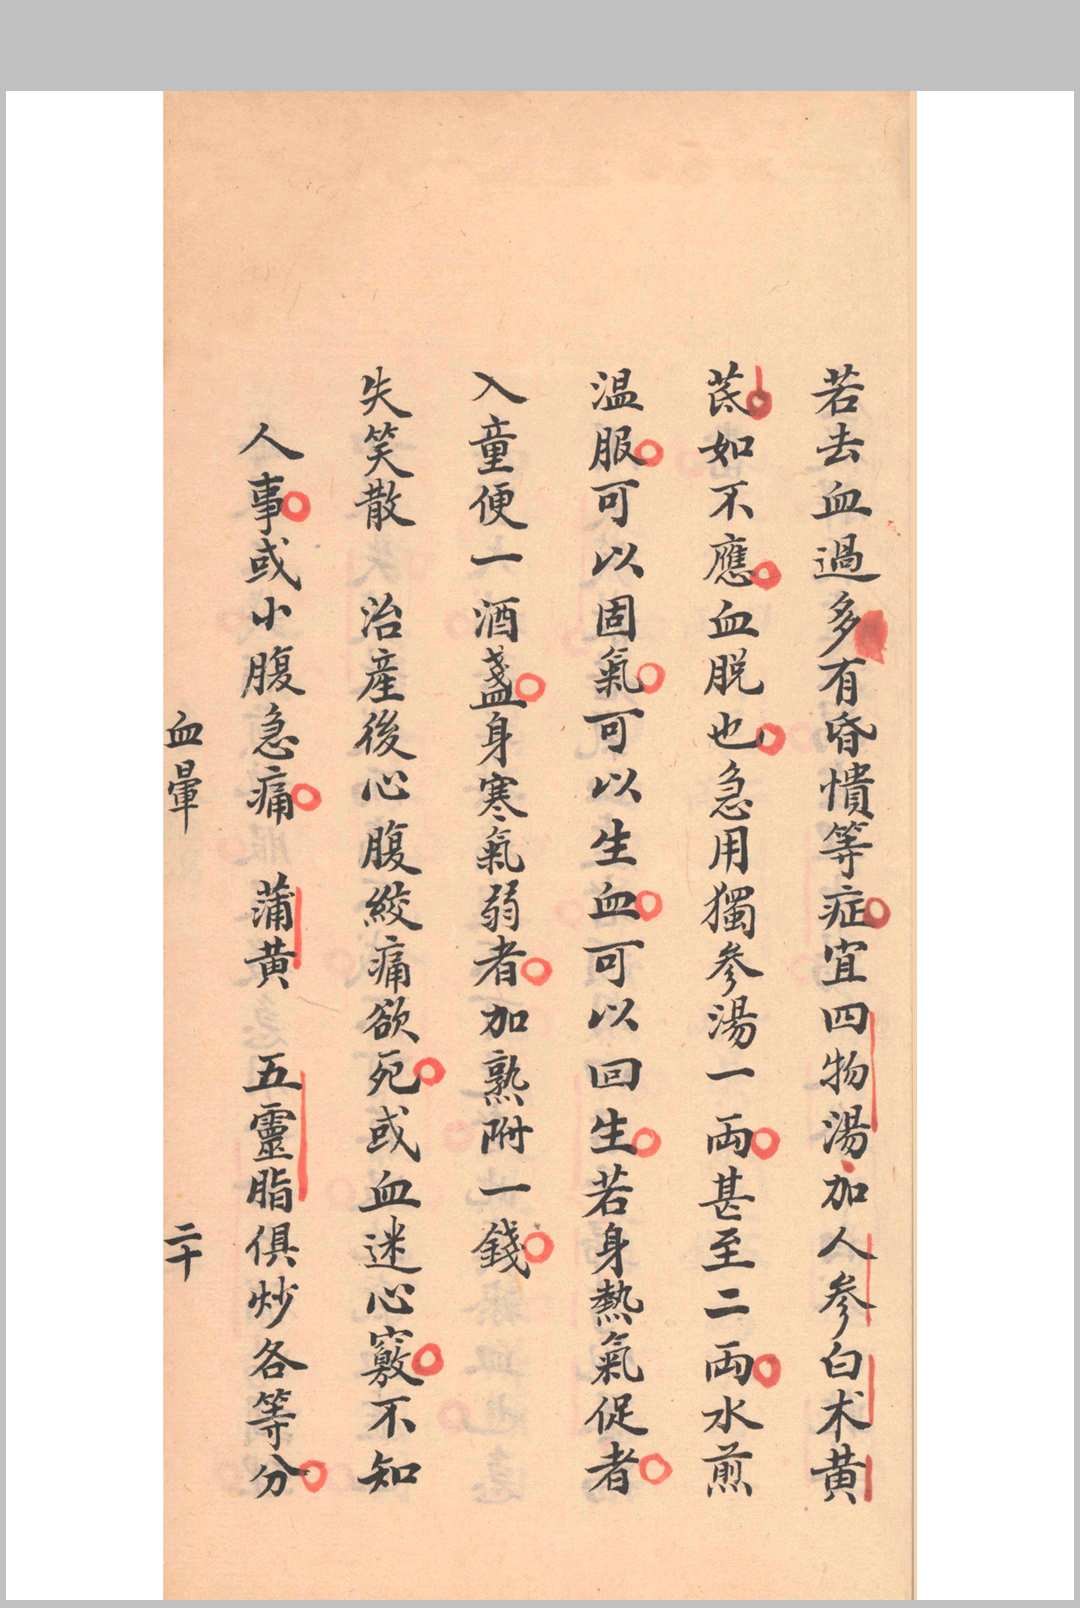 若去血過多有昏憒等症宜四物湯加人参白术黄
芪如不應血脱也急用獨参湯一両甚至二両水煎
温服可以固氣可以生血可以回生若身熱氣促者
入童便一酒盞身寒氣弱者加熟附一錢
失笑散 治產後心腹絞痛欲死或血迷心竅不知
人事或小腹急痛 蒲黄 五靈脂俱炒各等分
血暈 二十